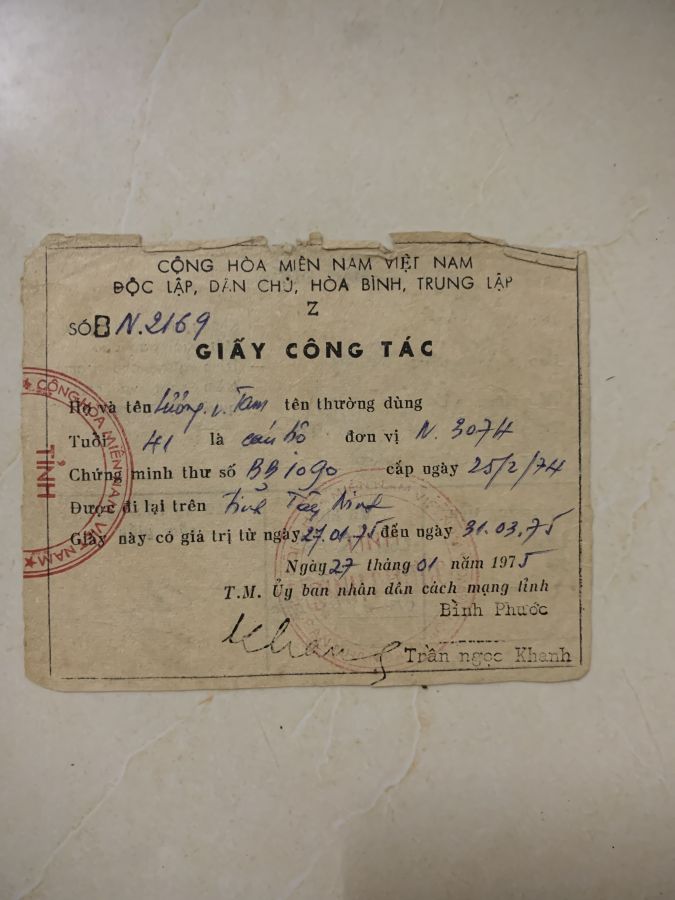 CỘNG HÒA MIỀN NAM VIỆT NAM
ĐỘC LẬP, DÂN CHỦ, HÒA BÌNH, TRUNG LẬP
Z
SỐ B N.2169
GIẤY CÔNG TÁC
Họ và tên Lương v. Tam tên thường dùng
Tuổi 41 là cán bộ đơn vị N. 3074
Chứng minh thư số BB 1090 cấp ngày 25/2/74
Được đi lại trên tỉnh Tây Ninh
Giấy này có giá trị từ ngày 27.01.75 đến ngày 31.03.75
Ngày 27 tháng 01 năm 1975
T.M. Ủy ban nhân dân cách mạng tỉnh
Bình Phước
Khanh
Trần ngọc Khanh
CỘNG HÒA MIỀN NAM VIỆT NAM
TỈNH